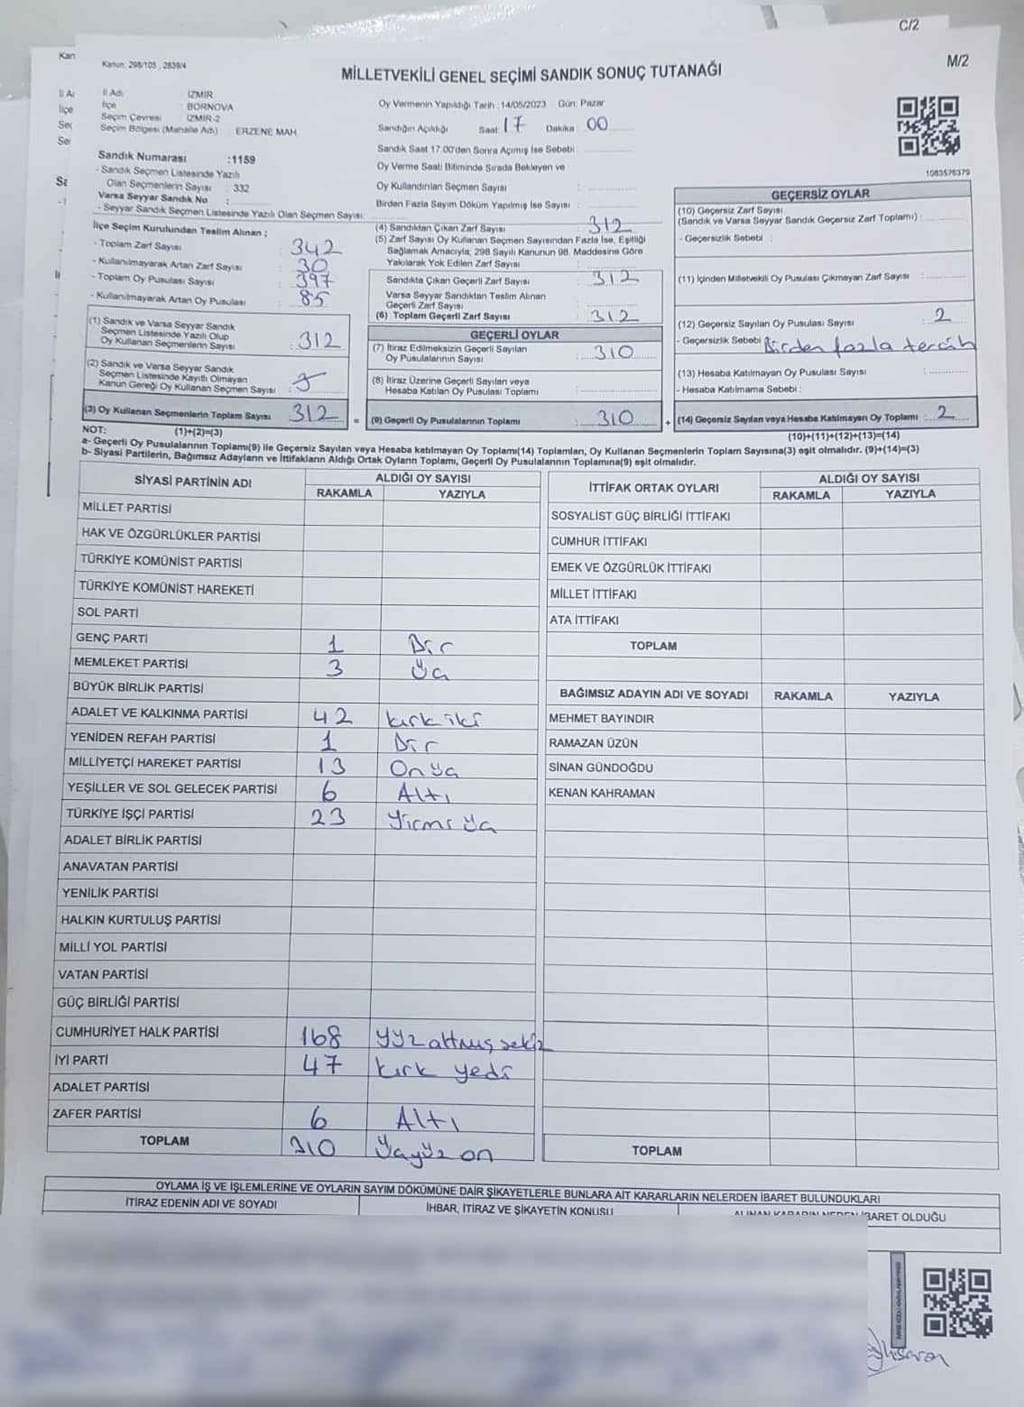 C/2
M/2
Kanun: 298/105 , 2839/4
MİLLETVEKİLİ GENEL SEÇİMİ SANDIK SONUÇ TUTANAĞI
İl Adı : İZMİR
İlçe : BORNOVA
Seçim Çevresi : İZMİR-2
Seçim Bölgesi (Mahalle Adı) : ERZENE MAH.
Oy Vermenin Yapıldığı Tarih : 14/05/2023 Gün: Pazar
Sandığın Açıldığı Saat: 17 Dakika: 00
Sandık Saat 17.00'den Sonra Açımış İse Sebebi :
Oy Verme Saati Bitiminde Sırada Bekleyen ve
Oy Kullandırılan Seçmen Sayısı :
Birden Fazla Sayım Döküm Yapılmış İse Sayısı :
1083576379
Sandık Numarası :1159
- Sandık Seçmen Listesinde Yazılı
Olan Seçmenlerin Sayısı : 332
Varsa Seyyar Sandık No :
- Seyyar Sandık Seçmen Listesinde Yazılı Olan Seçmen Sayısı :
İlçe Seçim Kurulundan Teslim Alınan ;
- Toplam Zarf Sayısı : 342
- Kullanılmayarak Artan Zarf Sayısı : 30
- Toplam Oy Pusulası Sayısı : 397
- Kullanılmayarak Artan Oy Pusulası : 85
(1) Sandık ve Varsa Seyyar Sandık
Seçmen Listesinde Yazılı Olup
Oy Kullanan Seçmenlerin Sayısı : 312
(2) Sandık ve Varsa Seyyar Sandık
Seçmen Listesinde Kayıtlı Olmayan
Kanun Gereği Oy Kullanan Seçmen Sayısı :
(3) Oy Kullanan Seçmenlerin Toplam Sayısı : 312
(1)+(2)=(3)
(4) Sandıktan Çıkan Zarf Sayısı : 312
(5) Zarf Sayısı Oy Kullanan Seçmen Sayısından Fazla İse, Eşitliği
Sağlamak Amacıyla; 298 Sayılı Kanunun 98. Maddesine Göre
Yakılarak Yok Edilen Zarf Sayısı :
Sandıkta Çıkan Geçerli Zarf Sayısı : 312
Varsa Seyyar Sandıktan Teslim Alınan
Geçerli Zarf Sayısı :
(6) Toplam Geçerli Zarf Sayısı : 312
GEÇERLİ OYLAR
(7) İtiraz Edilmeksizin Geçerli Sayılan
Oy Pusulalarının Sayısı : 310
(8) İtiraz Üzerine Geçerli Sayılan veya
Hesaba Katılan Oy Pusulası Toplamı :
= (9) Geçerli Oy Pusulalarının Toplamı : 310
GEÇERSİZ OYLAR
(10) Geçersiz Zarf Sayısı
(Sandık ve Varsa Seyyar Sandık Geçersiz Zarf Toplamı) :
- Geçersizlik Sebebi :
(11) İçinden Milletvekili Oy Pusulası Çıkmayan Zarf Sayısı :
(12) Geçersiz Sayılan Oy Pusulası Sayısı : 2
- Geçersizlik Sebebi : Birden fazla tercih
(13) Hesaba Katılmayan Oy Pusulası Sayısı :
- Hesaba Katılmama Sebebi :
+ (14) Geçersiz Sayılan veya Hesaba Katılmayan Oy Toplamı : 2
(10)+(11)+(12)+(13)=(14)
NOT:
a- Geçerli Oy Pusulalarının Toplamı(9) ile Geçersiz Sayılan veya Hesaba katılmayan Oy Toplamı(14) Toplamları, Oy Kullanan Seçmenlerin Toplam Sayısına(3) eşit olmalıdır. (9)+(14)=(3)
b- Siyasi Partilerin, Bağımsız Adayların ve İttifakların Aldığı Ortak Oyların Toplamı, Geçerli Oy Pusulalarının Toplamına(9) eşit olmalıdır.
SİYASİ PARTİNİN ADI ALDIĞI OY SAYISI
RAKAMLA YAZIYLA
MİLLET PARTİSİ
HAK VE ÖZGÜRLÜKLER PARTİSİ
TÜRKİYE KOMÜNİST PARTİSİ
TÜRKİYE KOMÜNİST HAREKETİ
SOL PARTİ
GENÇ PARTİ 1 Bir
MEMLEKET PARTİSİ 3 Üç
BÜYÜK BİRLİK PARTİSİ
ADALET VE KALKINMA PARTİSİ 42 kırk iki
YENİDEN REFAH PARTİSİ 1 Bir
MİLLİYETÇİ HAREKET PARTİSİ 13 On üç
YEŞİLLER VE SOL GELECEK PARTİSİ 6 Altı
TÜRKİYE İŞÇİ PARTİSİ 23 Yirmi üç
ADALET BİRLİK PARTİSİ
ANAVATAN PARTİSİ
YENİLİK PARTİSİ
HALKIN KURTULUŞ PARTİSİ
MİLLİ YOL PARTİSİ
VATAN PARTİSİ
GÜÇ BİRLİĞİ PARTİSİ
CUMHURİYET HALK PARTİSİ 168 yüz altmış sekiz
İYİ PARTİ 47 kırk yedi
ADALET PARTİSİ
ZAFER PARTİSİ 6 Altı
TOPLAM 310 Üçyüz on
İTTİFAK ORTAK OYLARI ALDIĞI OY SAYISI
RAKAMLA YAZIYLA
SOSYALİST GÜÇ BİRLİĞİ İTTİFAKI
CUMHUR İTTİFAKI
EMEK VE ÖZGÜRLÜK İTTİFAKI
MİLLET İTTİFAKI
ATA İTTİFAKI
TOPLAM
BAĞIMSIZ ADAYIN ADI VE SOYADI RAKAMLA YAZIYLA
MEHMET BAYINDIR
RAMAZAN ÜZÜN
SİNAN GÜNDOĞDU
KENAN KAHRAMAN
TOPLAM
OYLAMA İŞ VE İŞLEMLERİNE VE OYLARIN SAYIM DÖKÜMÜNE DAİR ŞİKAYETLERLE BUNLARA AİT KARARLARIN NELERDEN İBARET BULUNDUKLARI
İTİRAZ EDENİN ADI VE SOYADI İHBAR, İTİRAZ VE ŞİKAYETİN KONUSU ALINAN KARARIN NEDEN İBARET OLDUĞU